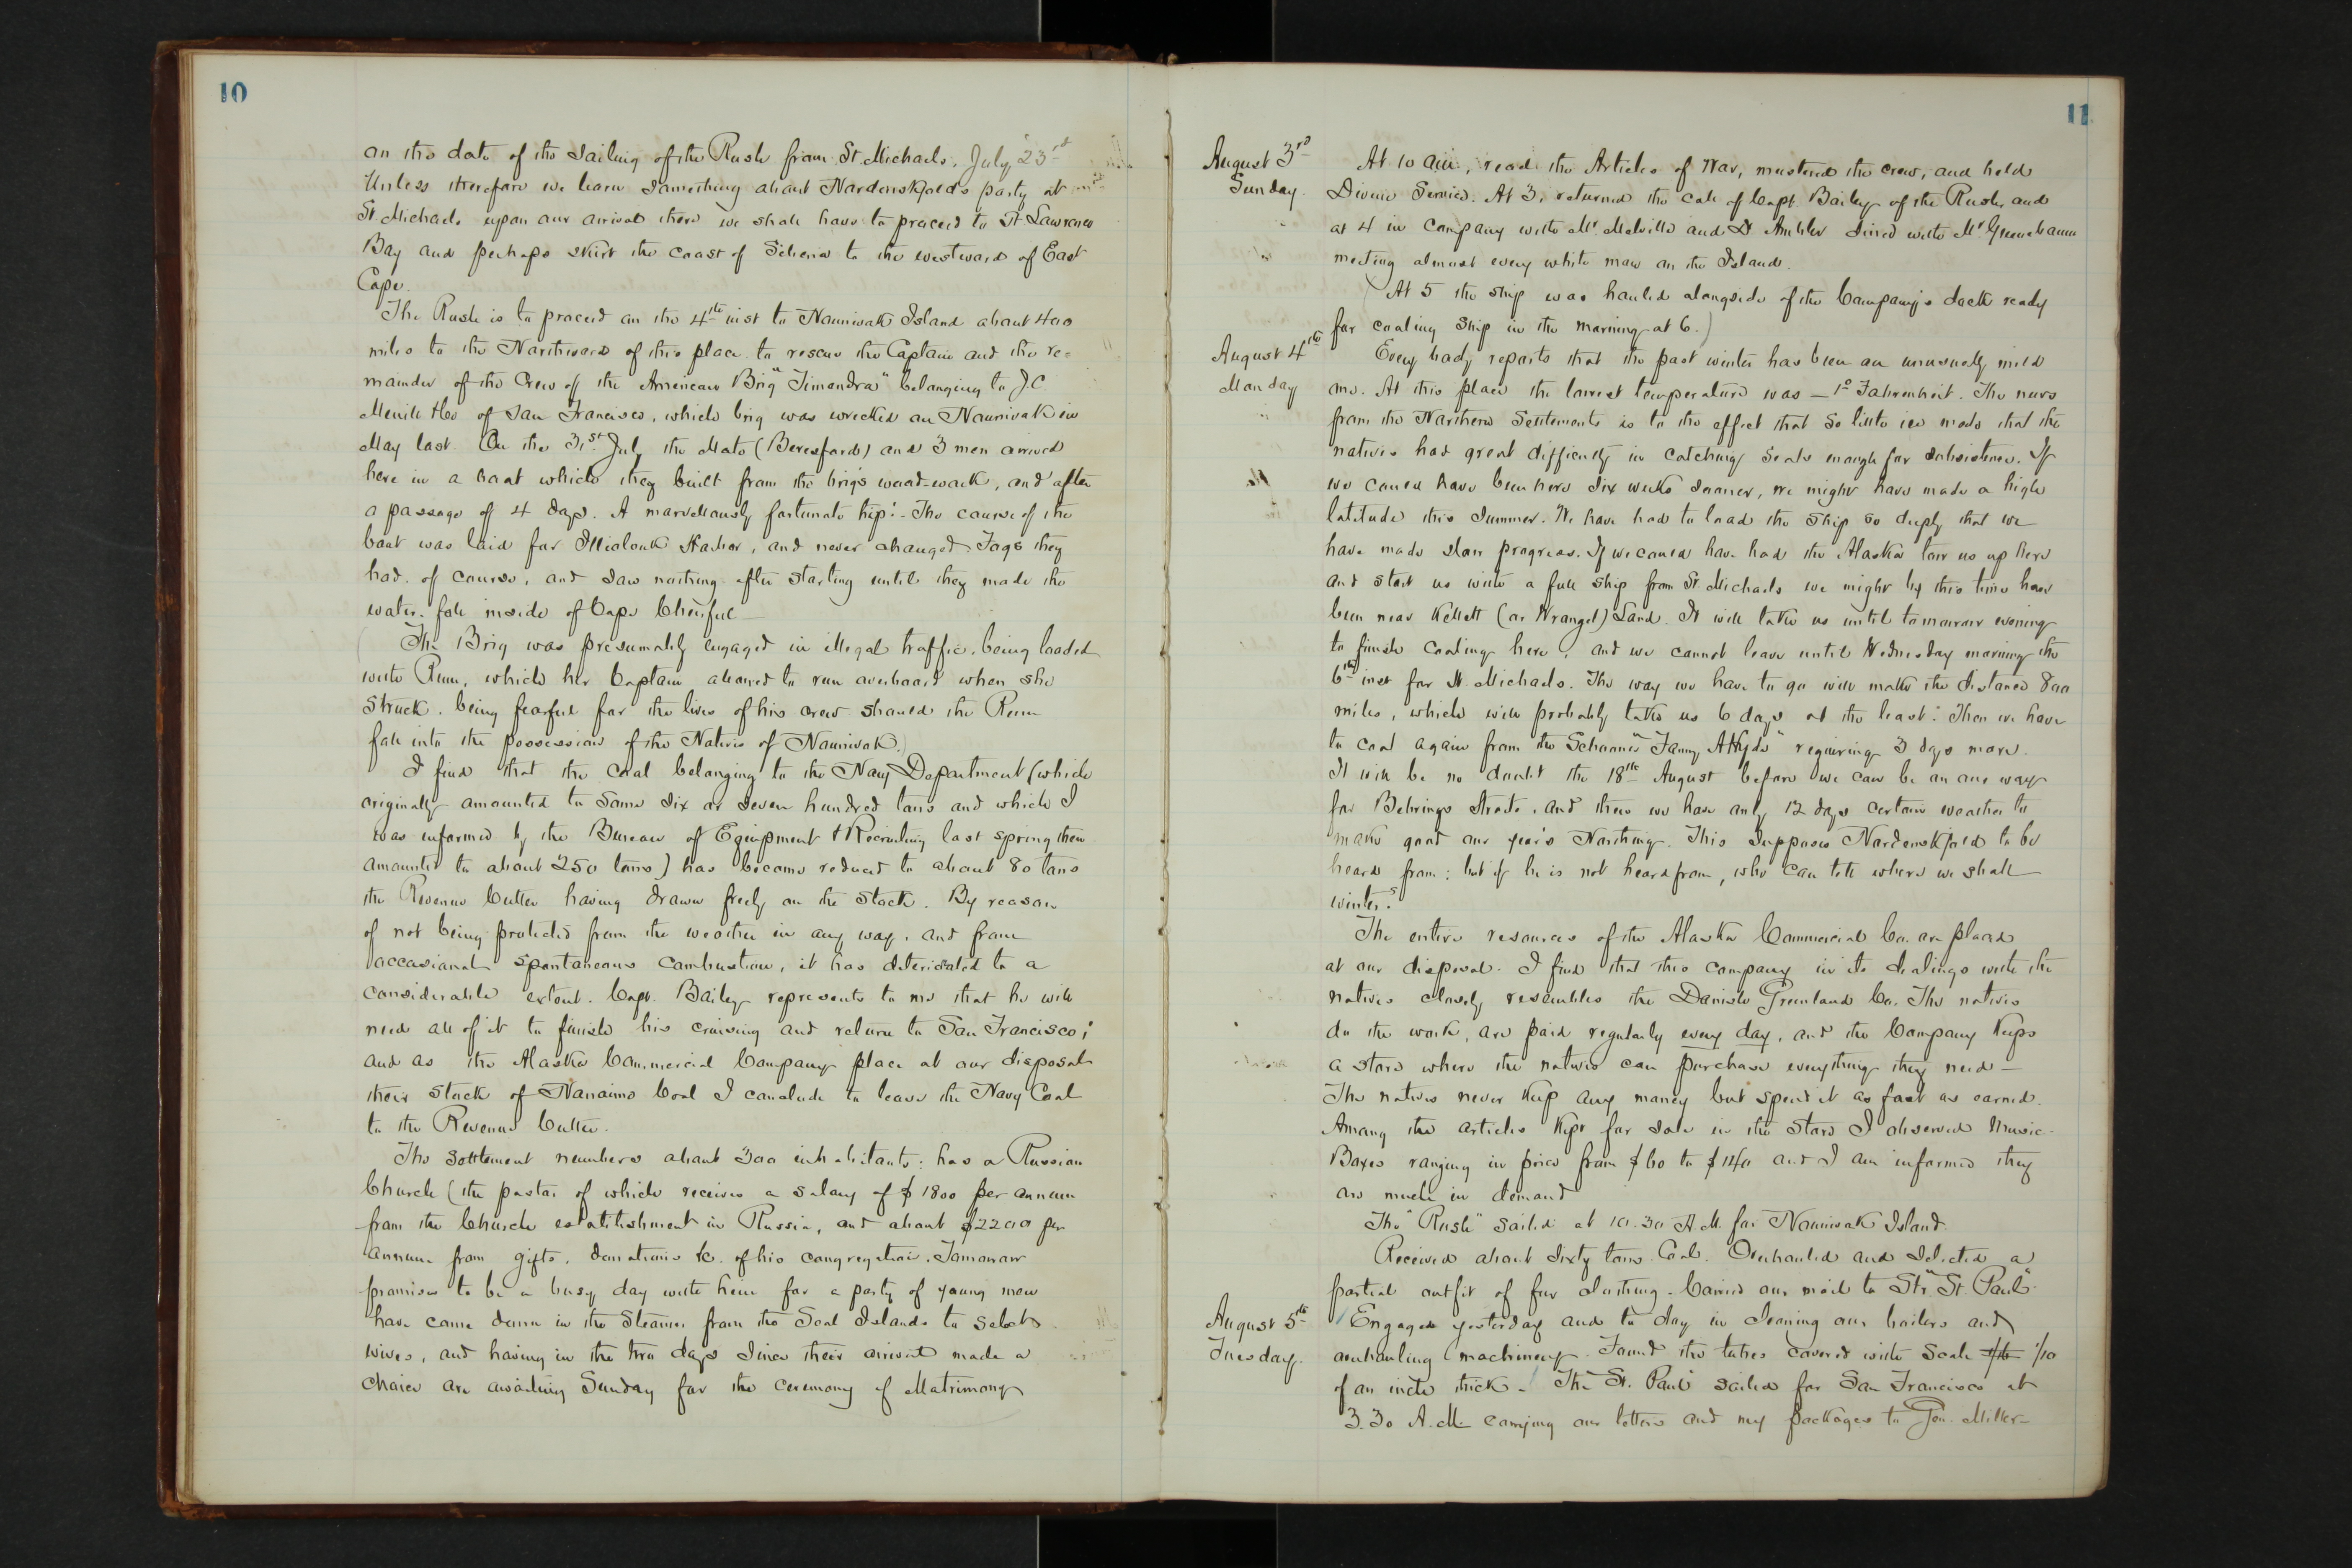 10
on the date of the sailing of the Rush from St. Michaels, July 23rd
Unless therefore we learn something about Nordenskjold's party at
St. Michaels upon our arrival there we shall have to proceed to St. Lawrence
Bay and perhaps skirt the coast of Siberia to the westward of East
Cape.
The Rush is to proceed on the 4th inst to Nounivak Island about 400
miles to the Northward of this place to rescue the Captain and the re=
mainder of the Crew of the American Brig "Timandra" belonging to J.C.
Merrill & Co of San Francisco, which brig was wrecked on Nounivak in
May last. On the 31st July the Mate (Beresford) and 3 men arrived
here in a boat which they built from the brig's wood-work, and after
a passage of 4 days. A marvellously fortunate trip! - The course of the
boat was laid for Illiolouk Harbor, and never changed. Fogs they
had, of course, and saw nothing after starting until they made the
water-fall inside of Cape Cheerful -
(The Brig was presumably engaged in illegal traffic, being loaded
with Rum, which her Captain allowed to run overboard when she
struck, being fearful for the lives of his crew should the Rum
fall into the possession of the Natives of Nounivak.)
I find that the coal belonging to the Navy Department (which
originally amounted to some six or seven hundred tons and which I
was informed by the Bureau of Equipment & Recruiting last spring then
amounted to about 250 tons) has become reduced to about 80 tons
the Revenue Cutter having drawn freely on the stock. By reason
of not being protected from the weather in any way, and from
occasional spontaneous combustion, it has deteriorated to a
considerable extent. Capt. Bailey represents to me that he will
need all of it to finish his cruising and return to San Francisco;
and as the Alaska Commercial Company place at our disposal
their stock of Nanaimo Coal I conclude to leave the Navy Coal
to the Revenue Cutter.
The settlement numbers about 300 inhabitants: has a Russian
Church (the pastor of which receives a salary of $1800 per annum
from the Church establishment in Russia, and about $2200 per
annum from gifts, donations &c. of his congregation. Tomorrow
promises to be a busy day with him for a party of young men
have come down in the Steamer from the Seal Islands to select
wives, and having in the two days since their arrival made a
choice are awaiting Sunday for the ceremony of Matrimony
11
August 3rd
Sunday.
At 10 am, read the Articles of War, mustered the crew, and held
Divine Service. At 3, returned the call of Capt. Bailey of the Rush, and
at 4 in company with Mr. Melville and Dr. Ambler dined with Mr. Greenebaum
meeting almost every white man on the Island.
(At 5 the ship was hauled alongside of the Company's dock ready
for coaling ship in the morning at 6.)
August 4th
Monday
Every body reports that the past winter has been an unusually mild
one. At this place the lowest temperature was -1° Fahrenheit. The news
from the Northern Settlements is to the effect that so little ice made that the
natives had great difficulty in catching seals enough for subsistence. If
we could have been here six weeks sooner, we might have made a high
latitude this summer. We have had to load the ship so deeply that we
have made slow progress. If we could have had the Alaska tow us up here
and start us with a full ship from St Michaels we might by this time have
been near Kellett (or Wrangel) Land. It will take us until tomorrow evening
to finish coaling here, and we cannot leave until Wednesday morning the
6th inst for St. Michaels. The way we have to go will make the distance 800
miles, which will probably take us 6 days at the least. Then we have
to coal again from the Schooner "Fanny A Hyde" requiring 3 days more.
It will be no doubt the 18th August before we can be on our way
for Behrings Straits, and then we have only 12 days certain weather to
make good our year's Northing. This supposes Nordenskjold to be
heard from: but if he is not heard from, who can tell where we shall
winter?
The entire resources of the Alaska Commercial Co. are placed
at our disposal. I find that this company in its dealings with the
natives closely resembles the Danish Greenland Co. The natives
do the work, are paid regularly every day, and the Company keeps
a store where the natives can purchase everything they need -
The natives never keep any money but spend it as fast as earned.
Among the articles kept for sale in the store I observed Music-
Boxes ranging in price from $60 to $140 and I am informed they
are much in demand
The "Rush" sailed at 10.30 A.M. for Nounivak Island.
Received about sixty tons Coal. Overhauled and selected a
partial outfit of fur clothing. Carried our mail to Str. "St. Paul".
August 5th
Tuesday.
Engaged yesterday and to day in cleaning our boilers and
overhauling machinery. Found the tubes covered with scale 1/16 1/10
of an inch thick. The "St. Paul" sailed for San Francisco at
3.30 A.M. carrying our letters and my packages to Gen. Miller-